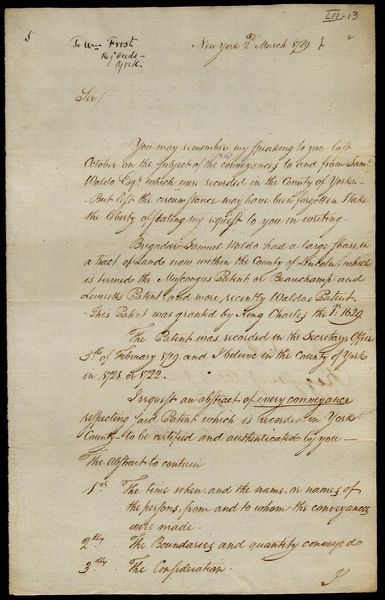 LII-13
5
To Wm Frost
Reg Deeds
York.
New York 2d March 1791
Sir/
You may remember my speaking to you last
October on the subject of the conveyances to and from Saml
Waldo Esqr which were recorded in the County of York.
But lest the circumstance may have been forgotten I take
the liberty of stating my request to you in writing.
Brigadier Samuel Waldo had a large share in
a tract of Lands now within the County of Lincoln, which
is termed the Muscongus Patent or Beauchamp and
Leveretts Patent, and more recently Waldos Patent.
This Patent was granted by King Charles the 1st 1629
The Patent was recorded in the Secretarys Office
5th of February 1719. and I believe in the County of York
in 1721 or 1722.
I request an abstract of every conveyance
respecting said Patent which is recorded in York
County to be certified and authenticated by you
The Abstract to contain
1st The time when, and the name, or names of
the persons, from and to whom the conveyances
were made.
2dly. The Boundaries and quantity conveyed
3dly. The Consideration.